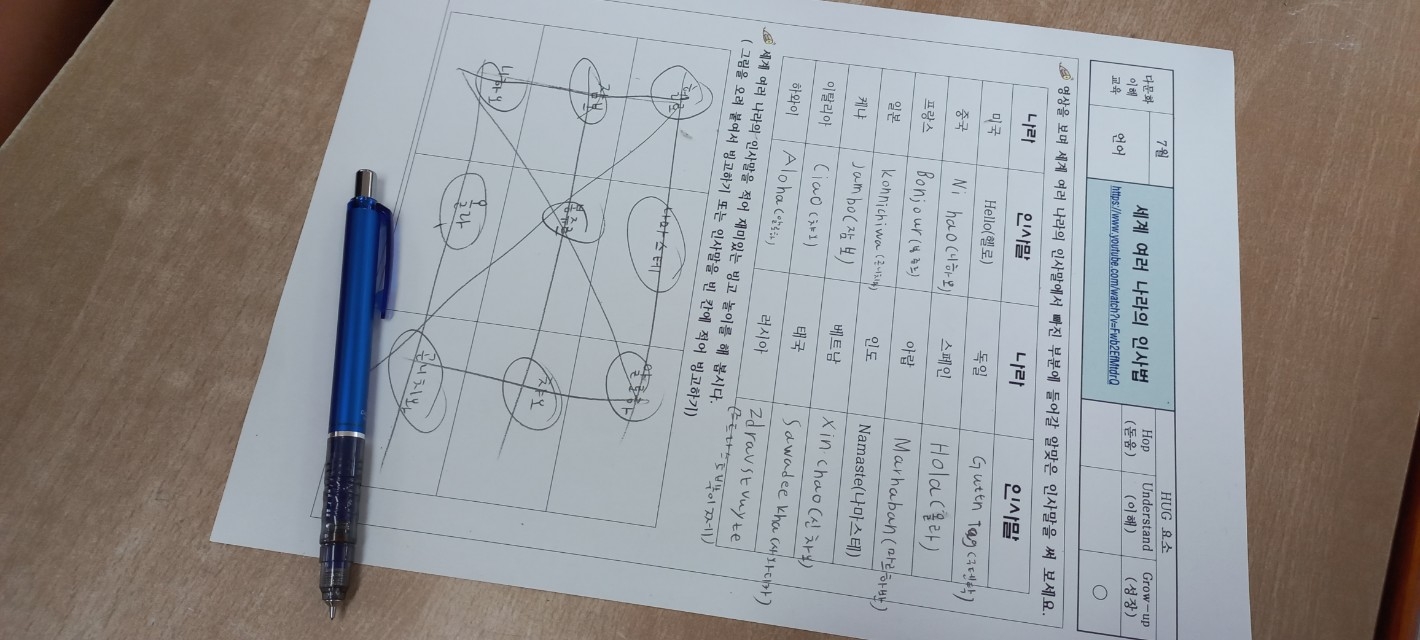 다문화 이해 교육
7월
언어
세계 여러 나라의 인사법
https://www.youtube.com/watch?v=Fwb2EfMtdrQ
HUG 요소
Hop (돋움)
Understand (이해)
Grow-up (성장)
○
영상을 보며 세계 여러 나라의 인사말에서 빠진 부분에 들어갈 알맞은 인사말을 써 보세요.
나라 인사말 나라 인사말
미국 Hello(헬로) 독일 Guttn Tag(구텐탁)
중국 Ni hao(니하오) 스페인 Hola(올라)
프랑스 Bonjour 아랍 Marhaban(마르하반)
일본 Konnichiwa(곤니치와) 인도 Namaste(나마스테)
케냐 Jambo(잠보) 베트남 Xin chao(신차오)
이탈리아 Ciao(챠오) 태국 Sawadee kha(사와디카)
하와이 Aloha(알로하) 러시아 Zdravstvuyte
세계 여러 나라의 인사말을 적어 재미있는 빙고 놀이를 해 봅시다.
(그림을 오려 붙여서 빙고하기 또는 인사말을 빈 칸에 적어 빙고하기)
헬로 나마스테 알로하
잠보 봉쥬르 챠오
니하오 올라 곤니치와